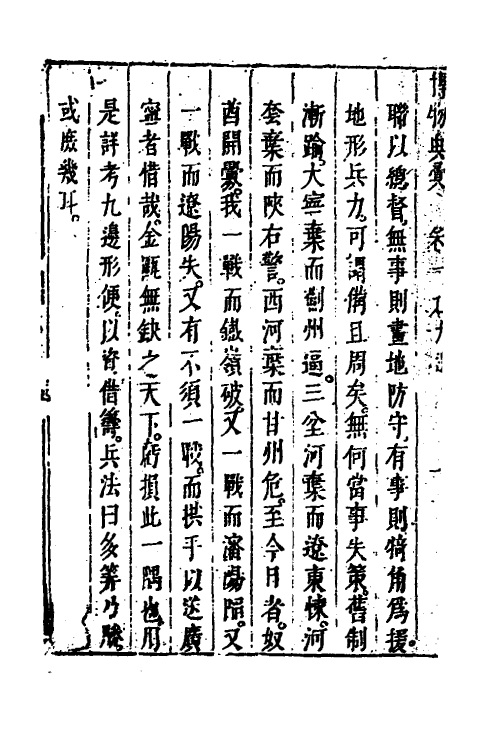 博物典彙 卷
聯以總督無事則畫地防守有事則犄角為援
地形兵力可謂備且周矣無何當事失策舊制
漸踰大寧棄而薊州逼三坌河棄而遼東悚河
套棄而陜右警西河棄而甘州危至今日者奴
酋開釁我一戰而鐵嶺破又一戰而瀋陽陷又
一戰而遼陽失又有不須一戰而拱手以送廣
寧者惜哉金甌無缺之天下虧損此一隅也用
是詳考九邊形便以資借籌兵法曰多筭乃勝
或庶幾耳